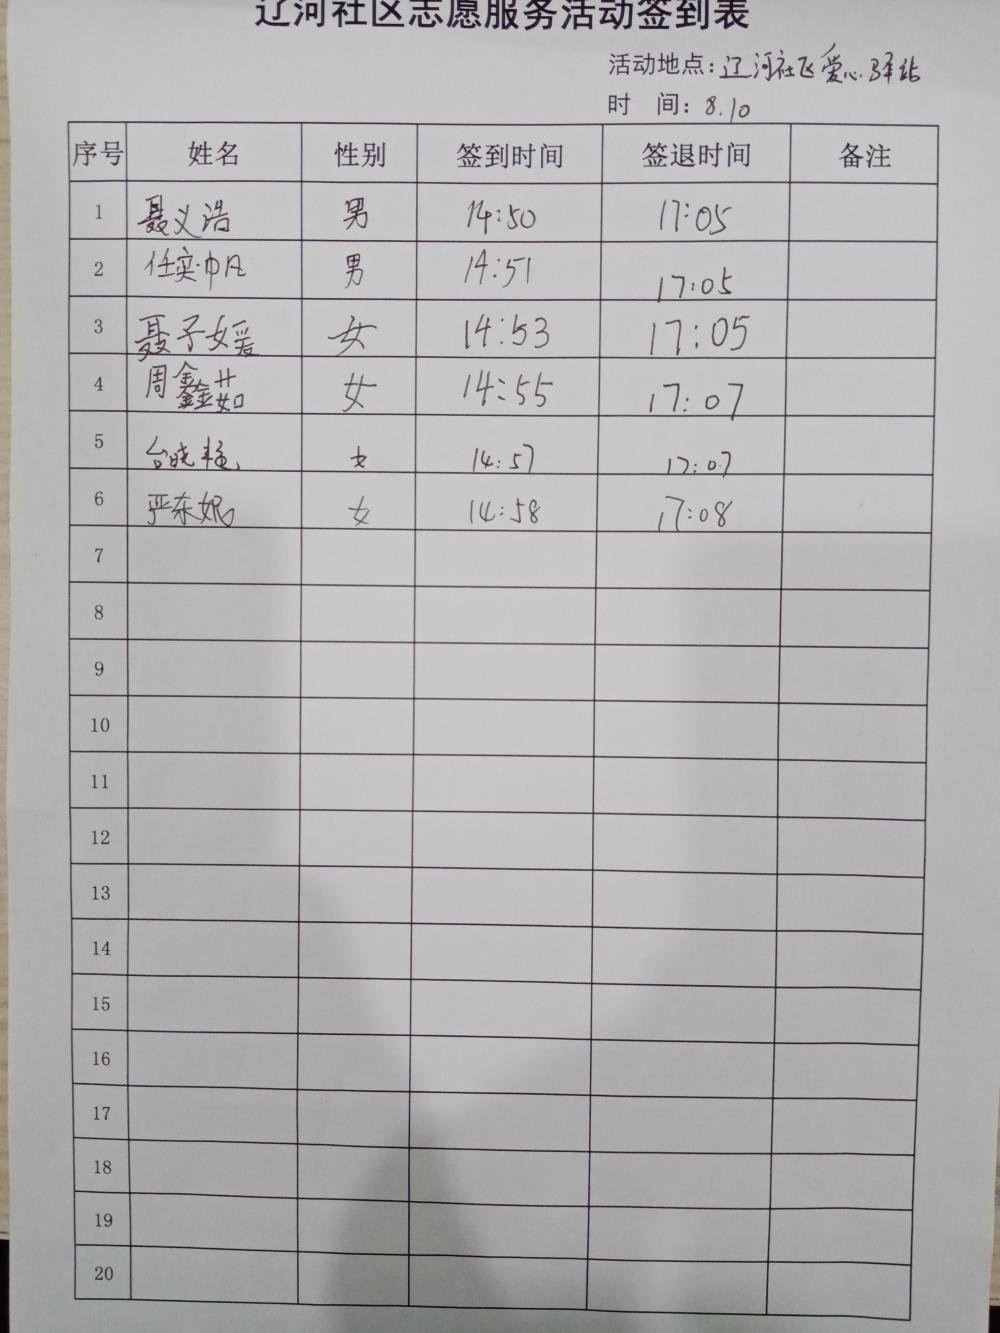 辽河社区志愿服务活动签到表
活动地点:辽河社区爱心驿站
时 间:8.10
序号 姓名 性别 签到时间 签退时间 备注
1 聂义浩 男 14:50 17:05
2 任实帆 男 14:51 17:05
3 聂子媛 女 14:53 17:05
4 周鑫茹 女 14:55 17:07
5 台晓艳 女 14:57 17:07
6 严东妮 女 14:58 17:08
7
8
9
10
11
12
13
14
15
16
17
18
19
20